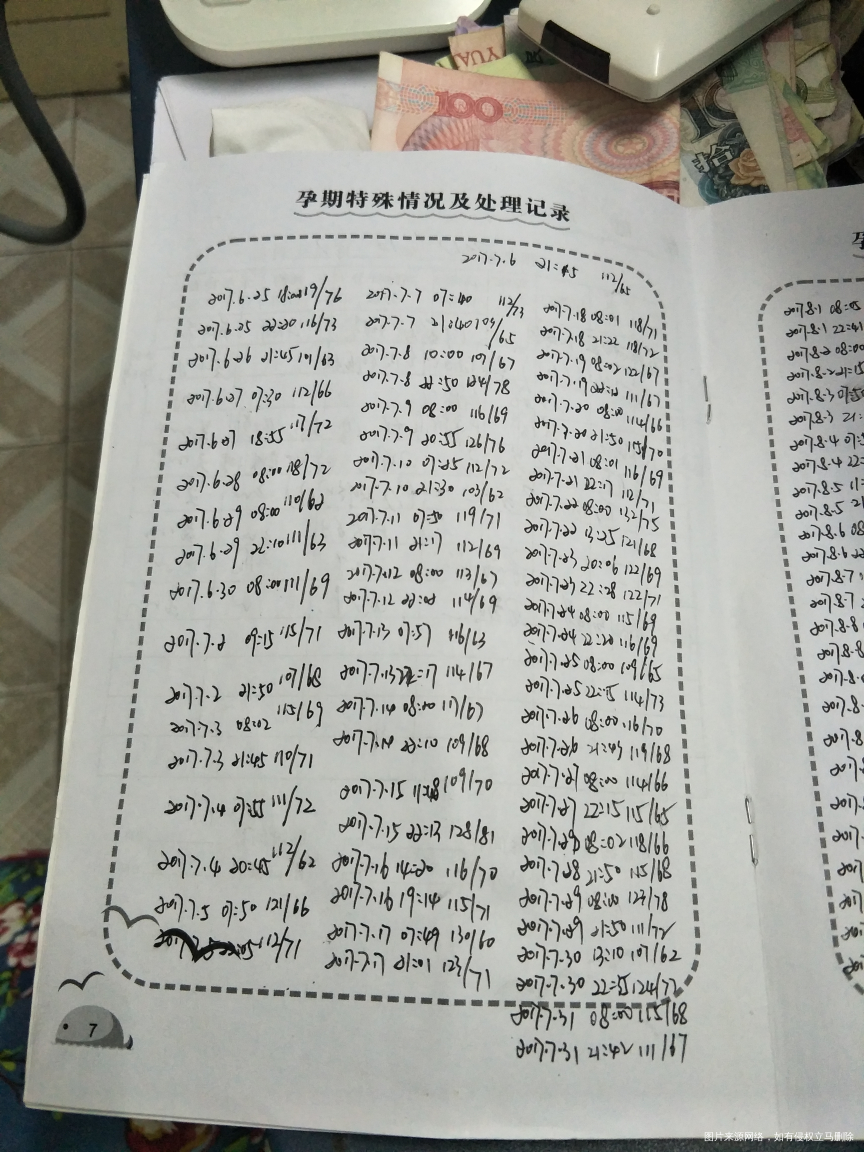 YUAN
100
孕期特殊情况及处理记录
2017.7.6 21:45 112/65
2017.6.25 18:00 119/76
2017.6.25 22:20 116/73
2017.6.26 21:45 101/63
2017.6.27 07:30 112/66
2017.6.27 18:55 117/72
2017.6.28 08:00 118/72
2017.6.29 08:00 110/62
2017.6.29 22:10 111/63
2017.6.30 08:00 111/69
2017.7.2 09:15 115/71
2017.7.2 21:50 107/68
2017.7.3 08:02 115/69
2017.7.3 21:45 110/71
2017.7.4 07:55 111/72
2017.7.4 20:45 112/62
2017.7.5 07:50 121/66
112/71
2017.7.7 07:40 112/73
2017.7.7 21:40 103/65
2017.7.8 10:00 107/67
2017.7.8 22:50 124/78
2017.7.9 08:00 116/69
2017.7.9 20:55 126/76
2017.7.10 07:25 112/72
2017.7.10 21:30 103/62
2017.7.11 07:50 119/71
2017.7.11 21:17 112/69
2017.7.12 08:00 113/67
2017.7.12 22:02 114/69
2017.7.13 07:57 116/63
2017.7.13 22:17 114/67
2017.7.14 08:00 117/67
2017.7.14 22:10 109/68
2017.7.15 109/70
2017.7.15 22:13 128/81
2017.7.16 14:20 116/70
2017.7.16 19:14 115/71
2017.7.17 07:49 130/60
2017.7.17 21:01 123/71
2017.7.18 08:01 118/71
2017.7.18 21:22 118/72
2017.7.19 08:02 122/67
2017.7.19 22:12 111/67
2017.7.20 08:00 114/66
2017.7.20 21:50 115/70
2017.7.21 08:01 116/69
2017.7.21 22:17 112/71
2017.7.22 08:00 132/75
2017.7.22 13:25 121/68
2017.7.23 20:06 122/69
2017.7.23 22:28 122/71
2017.7.24 08:00 115/69
2017.7.24 22:20 116/69
2017.7.25 08:00 109/65
2017.7.25 22:15 114/73
2017.7.26 08:00 116/70
2017.7.26 21:49 119/68
2017.7.27 08:00 114/66
2017.7.27 22:15 115/65
08:02 118/66
2017.7.28 21:50 115/68
2017.7.29 08:00 127/78
2017.7.29 21:50 111/72
2017.7.30 13:10 107/62
2017.7.30 22:55 124/77
2017.7.31 08:00 115/68
2017.7.31 21:42 111/67
7
孕
2017.8.1 08:05
2017.8.1 22:41
2017.8.2 08:00
2017.8.2 21:15
2017.8.3 07:50
2017.8.3 21:
2017.8.4 07:5
2017.8.4 22:
2017.8.5 11:
2017.8.5 21
2017.8.6 08:
2017.8.6 22
2017.8.7
2017.8.7
2017.8.8
2017.8.8
图片来源网络，如有侵权立马删除